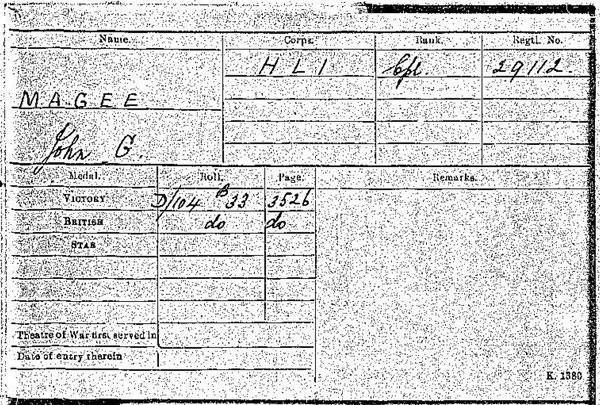 Name. Corps. Rank. Regtl. No.
H L I Cpl 29112.
MAGEE
John G.
Medal. Roll. Page. Remarks.
VICTORY D/104 B 33 3526
BRITISH do do
STAR
Theatre of War first served in
Date of entry therein
K. 1380